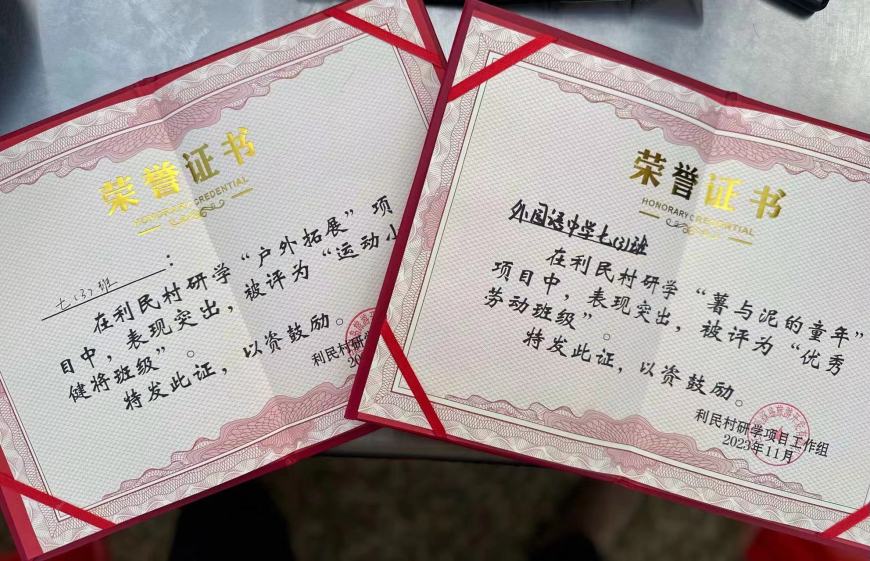 荣誉证书
HONORARY CREDENTIAL
七(3)班：
在利民村研学“户外拓展”项
目中，表现突出，被评为“运动小
健将班级”。
特发此证，以资鼓励。
利民村研学
荣誉证书
HONORARY CREDENTIAL
外国语中学七(3)班
在利民村研学“薯与泥的童年”
项目中，表现突出，被评为“优秀
劳动班级”。
特发此证，以资鼓励。
利民村研学项目工作组
2023年11月